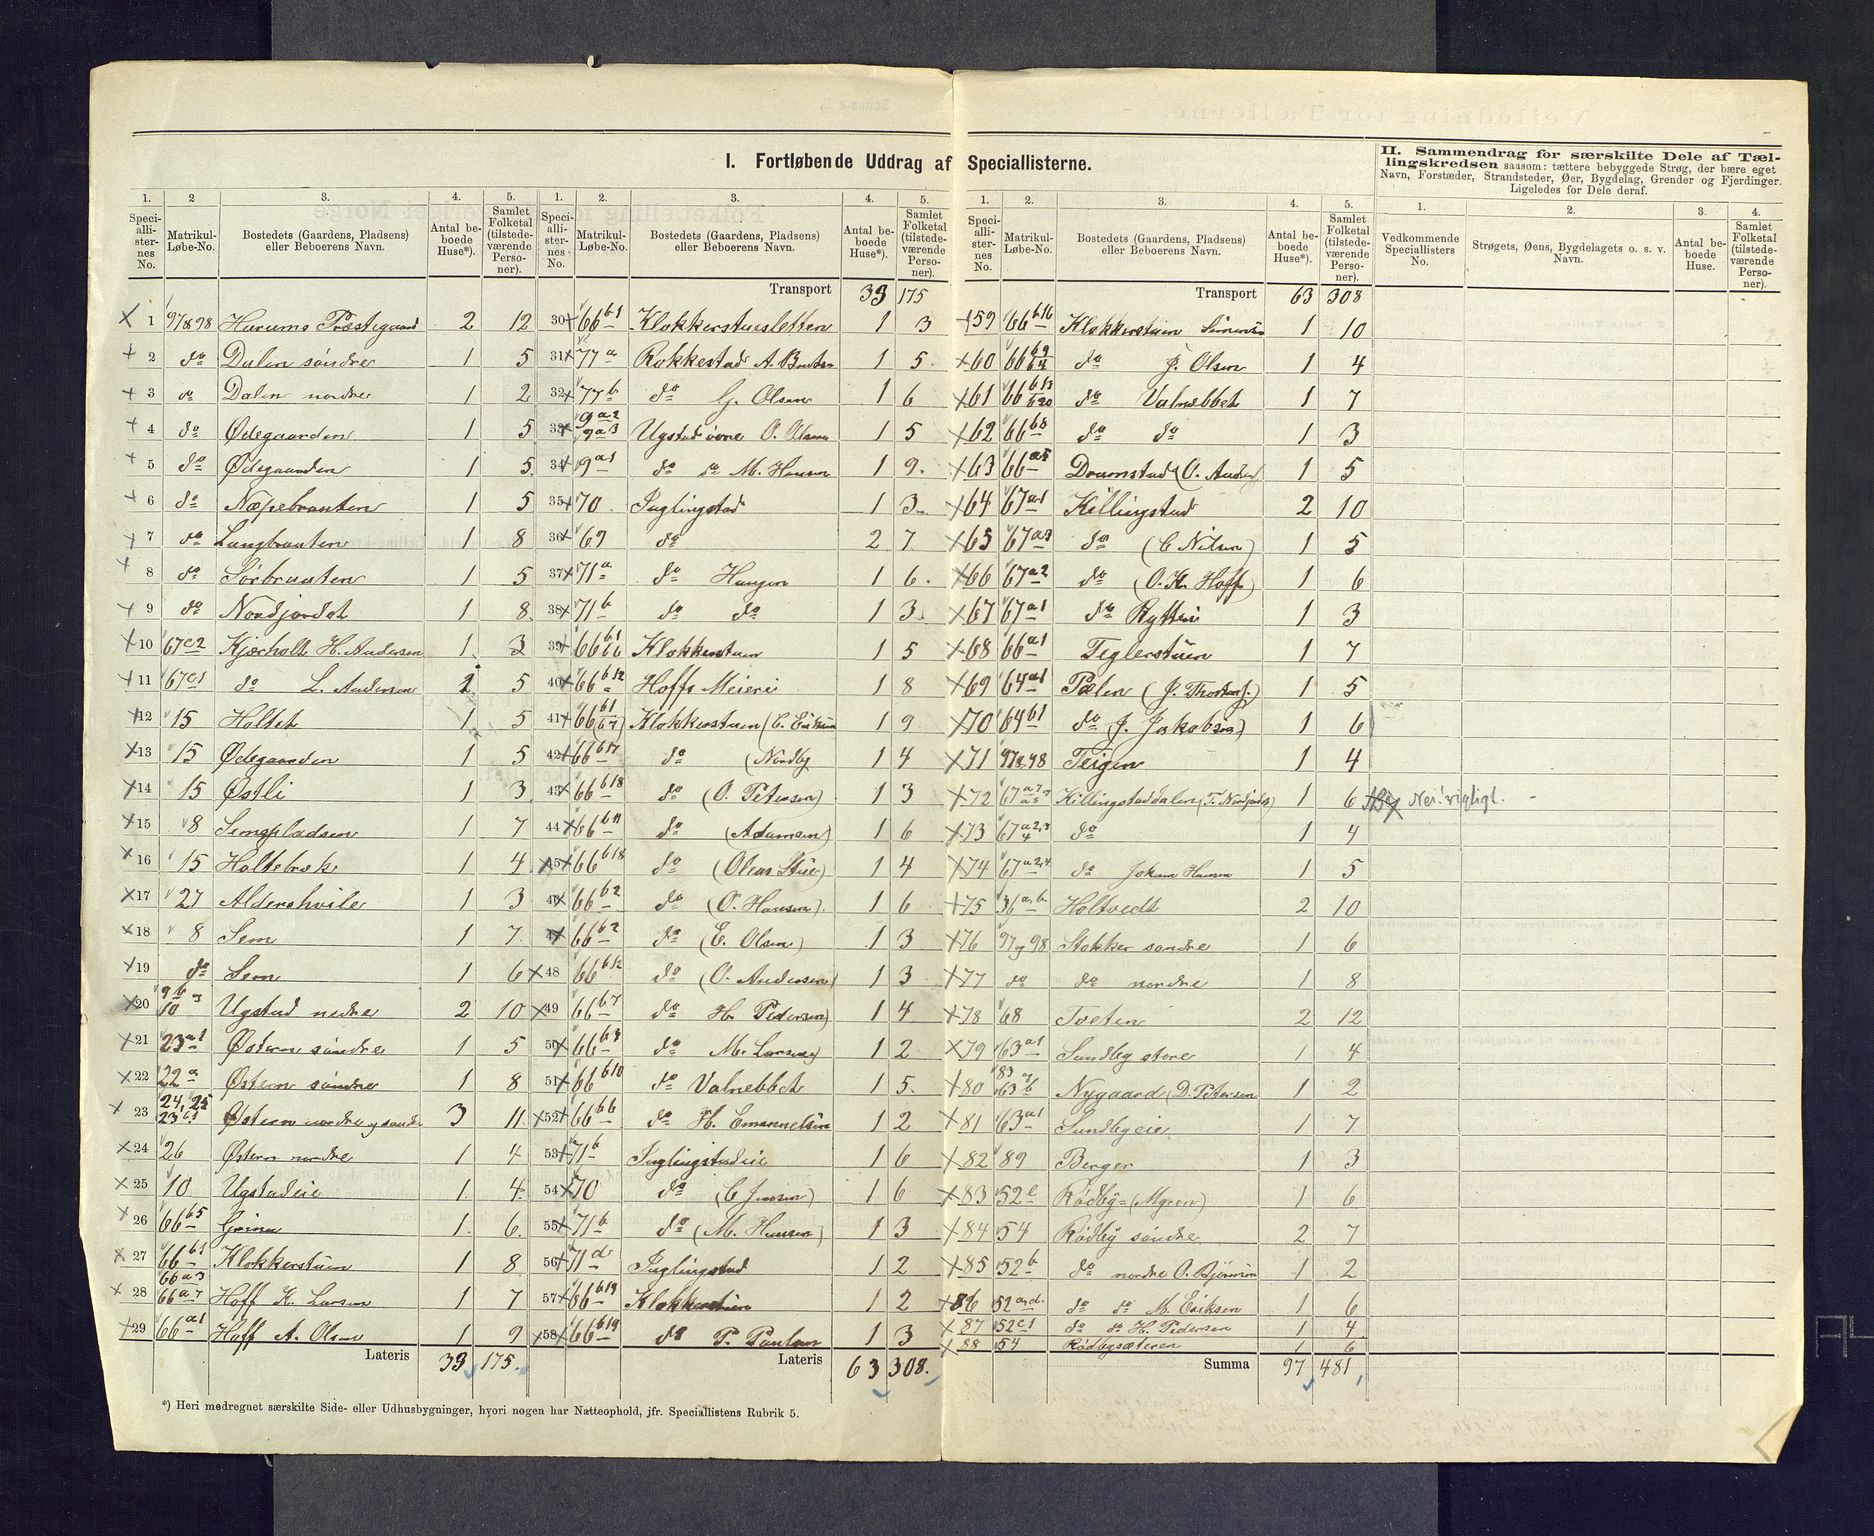 I. Fortløbende Uddrag af Speciallisterne.
II. Sammendrag for særskilte Dele af Tællingskredsen saasom: tættere bebyggede Strøg, der bære eget Navn, Forstæder, Strandsteder, Øer, Bygdelag, Grender og Fjerdinger. Ligeledes for Dele deraf.
1. 2 3. 4. 5. 1. 2. 3. 4. 5. 1. 2. 3. 4. 5. 1. 2. 3. 4.
Speciallisternes No. Matrikul-Løbe-No. Bostedets (Gaardens, Pladsens) eller Beboerens Navn. Antal beboede Huse*). Samlet Folketal (tilstedeværende Personer).
Speciallisternes No. Matrikul-Løbe-No. Bostedets (Gaardens, Pladsens) eller Beboerens Navn. Antal beboede Huse*). Samlet Folketal (tilstedeværende Personer).
Speciallisternes No. Matrikul-Løbe-No. Bostedets (Gaardens, Pladsens) eller Beboerens Navn. Antal beboede Huse*). Samlet Folketal (tilstedeværende Personer).
Vedkommende Speciallisters No. Strøgets, Øens, Bygdelagets o. s. v. Navn. Antal beboede Huse. Samlet Folketal (tilstedeværende Personer).
1 97 & 98 Hurums Præstegaard 2 12
2 do Dalen søndre 1 5
3 do Dalen nordre 1 2
4 do Ødegaarden 1 5
5 do Ødegaarden 1 5
6 do Næpebraaten 1 5
7 do Langbraaten 1 8
8 do Sørbraaten 1 5
9 do Nordjordet 1 8
10 67c2 Kjærholt H. Andersen 1 3
11 67c1 do L. Andersen 1 5
12 15 Holtet 1 5
13 15 Ødegaarden 1 5
14 15 Østli 1 3
15 8 Semspladsen 1 7
16 15 Holtebræk 1 4
17 27 Aldershvile 1 3
18 8 Sem 1 7
19 do Sem 1 6
20 9b og 10 Ugstad nedre 2 10
21 23a1 Østern søndre 1 5
22 22a Østern søndre 1 8
23 24, 25 23b1 Østern nordre og søndre 3 11
24 26 Østern nordre 1 4
25 10 Ugstadeie 1 4
26 66b5 Grina 1 6
27 66b1 Klokkerstuen 1 8
28 66a3 66a7 Hoff K. Larsen 1 7
29 66a1 Hoff A. Olsen 1 9
Lateris 33 175
Transport 33 175
30 66b1 Klokkerstuesletten 1 3
31 77a Rokkestad A. 1 5
32 77b do G. Olsen 1 6
33 9a2 9a3 Ugstad øvre O. Olsen 1 5
34 9a1 do do M. Hansen 1 9
35 70 Juglingstad 1 3
36 69 do 2 7
37 71a do Haugen 1 6
38 71b do do 1 3
39 66b1 Klokkerstuen 1 5
40 66b12 Hoffs Meieri 1 8
41 66b1 Klokkerstuen (E. Eriksen 1 9
42 66b17 do (Nordby 1 4
43 66b18 do (O. Petersen) 1 3
44 66b11 do (Adamsen) 1 6
45 66b18 do (Oleas Stue) 1 4
46 66b2 do (O. Hansen) 1 6
47 66b2 do (E. Olsen) 1 3
48 66b12 do (O. Andersen) 1 3
49 66b7 do H. Pedersen) 1 4
50 66b3 do M. Larsen) 1 2
51 66b10 do Valnebbet 1 5
52 66b6 do H. Emanuelsen 1 2
53 71b Juglingstadeie 1 6
54 70 do (C. Jensen) 1 6
55 71b do (M. Hansen) 1 3
56 71d Juglingstad 1 2
57 66b19 Klokkerstuen 1 2
58 66b19 do P. Paulsen 1 3
Lateris 63 308.
Transport 63 308
59 66b16 Klokkerstuen Simensen 1 10
60 66b9 do J. Olsen 1 4
61 66b13 b20 do Valnebbet 1 7
62 66b8 do do 1 3
63 66a5 Drounstad (O. Anders) 1 5
64 67a1 Killingstad 2 10
65 67a3 do (C. Nilsen) 1 5
66 67a2 do (O. K. Hoff) 1 6
67 67a1 do Rytteri 1 3
68 66a1 Teglerstuen 1 7
69 64a1 Pælen (J. Thorkers). 1 5
70 64b1 do (J. Jakobsen) 1 6
71 97 & 98 Teigen 1 4
72 67a7 a8 Killingstaddalen (T. Nordjordet) 1 6
73 67a2,3 4 do 1 4
74 67a2,4 do Jokum Hansen 1 5
75 36a,b Holtvedt 2 10
76 97 og 98 Stokker søndre 1 6
77 do do nordre 1 8
78 68 Tveten 2 12
79 63a1 Sundby store 1 4
80 83 og 63b Nygaard (D. Petersen 1 2
81 63a1 Sundbyeie 1 7
82 89 Berger 1 3
83 52e Rødby (Myren) 1 6
84 54 Rødby søndre 2 7
85 52b do nordre O. Bjørnsen 1 2
86 52a,d. do do M. Eriksen 1 6
87 52c1 do do H. Pedersen 1 4
88 54 Rødbysæteren 1 6
Summa 97 481
*) Heri medregnet særskilte Side- eller Udhusbygninger, hvori nogen har Natteophold, jfr. Speciallistens Rubrik 5.